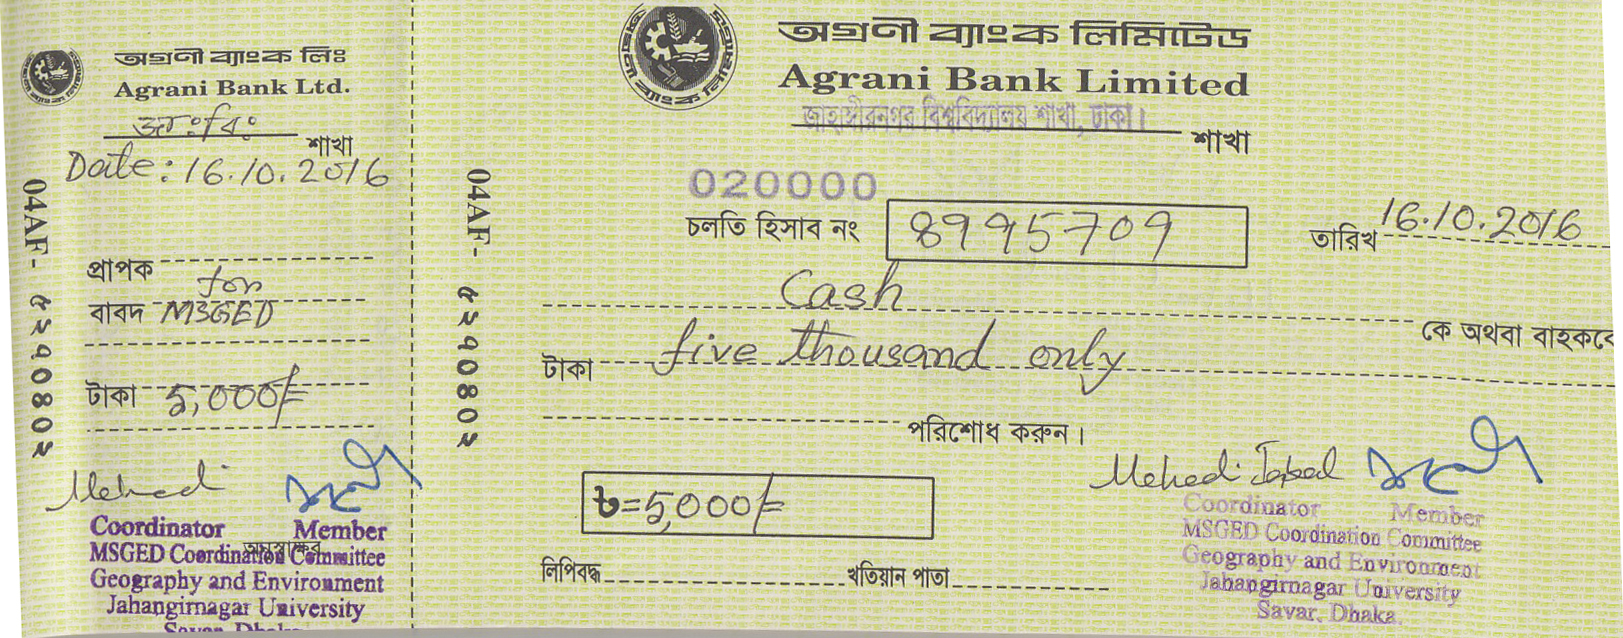 অগ্রণী ব্যাংক লিঃ
Agrani Bank Ltd.
জাঃবিঃ শাখা
Date: 16.10.2016
04AF- ৫২৭০৪০২
প্রাপক
for
বাবদ MSGED
টাকা 5,000/=
Mehedi
Coordinator Member
অনুস্বাক্ষর
MSGED Coordination Committee
Geography and Environment
Jahangirnagar University
Savar, Dhaka
অগ্রণী ব্যাংক লিমিটেড
Agrani Bank Limited
জাহাঙ্গীরনগর বিশ্ববিদ্যালয় শাখা, ঢাকা।
শাখা
04AF- ৫২৭০৪০২
020000
চলতি হিসাব নং 8995709
তারিখ 16.10.2016
Cash
কে অথবা বাহককে
টাকা five thousand only
পরিশোধ করুন।
৳=5,000/=
Mehedi Iqbal
Coordinator Member
MSGED Coordination Committee
Geography and Environment
Jahangirnagar University
Savar, Dhaka.
লিপিবদ্ধ খতিয়ান পাতা